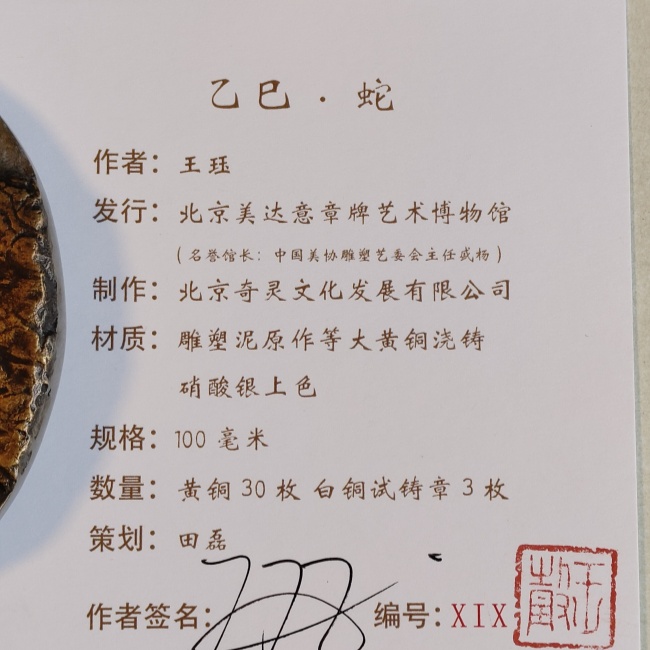 乙巳·蛇
作者：王珏
发行：北京美达意章牌艺术博物馆
(名誉馆长：中国美协雕塑艺委会主任盛杨)
制作：北京奇灵文化发展有限公司
材质：雕塑泥原作等大黄铜浇铸
硝酸银上色
规格：100 毫米
数量：黄铜 30 枚 白铜试铸章 3 枚
策划：田磊
作者签名：
编号：XIX